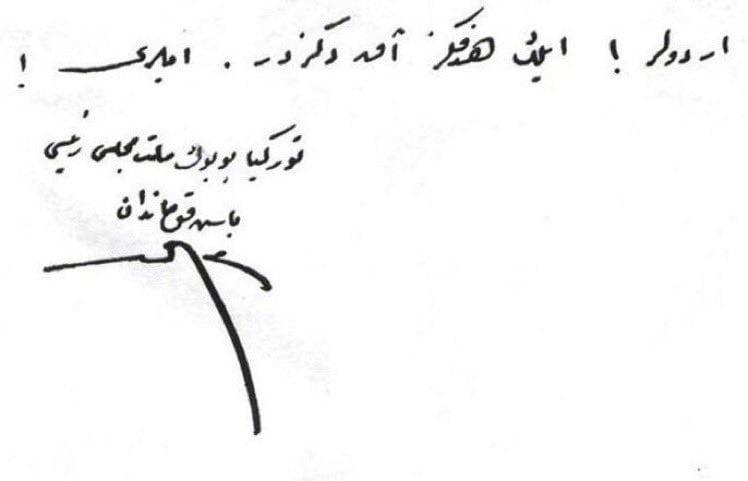 اردولر ! ایلك هدفكز آق دكزدر . ایلرى !
توركیا بویوك ملت مجلسى رئیسى
باش قوماندان